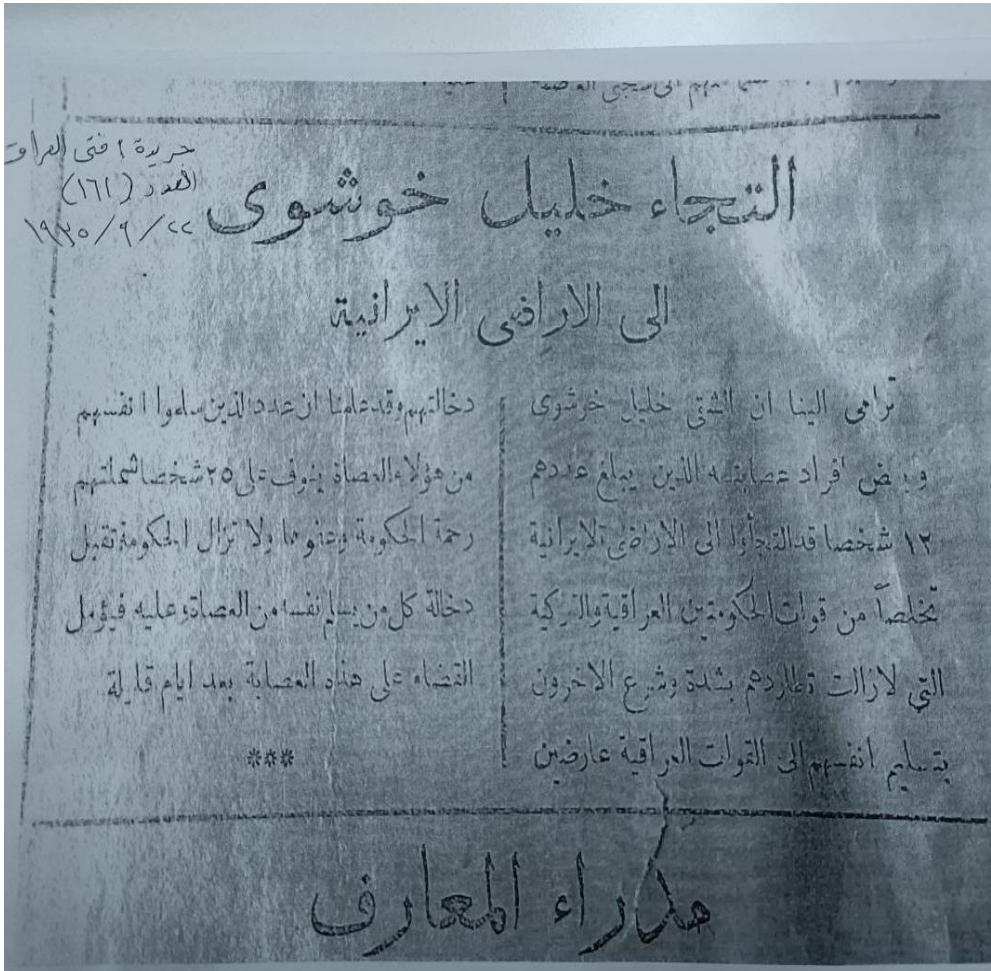 جريدة فتى العراق
العدد (١٦١)
٢٢/٩/١٩٣٥
التجاء خليل خوشوى
الى الاراضى الايرانية
ترامى الينا ان الشقى خليل خوشوى
وبعض افراد عصابته الذين يبلغ عددهم
١٢ شخصا قد التجأوا الى الاراضى الايرانية
تخلصاً من قوات الحكومتين العراقية والتركية
التي لازالت تطاردهم بشدة وشرع الاخرون
بتسليم انفسهم الى القوات العراقية عارضين
دخالتهم وقد علمنا ان عدد الذين سلموا انفسهم
من هؤلاء العصاة ينوف على ٢٥ شخصا شملتهم
رحمة الحكومة وعفوها ولا تزال الحكومة تقبل
دخالة كل من يسلم نفسه من العصاة، وعليه فيؤمل
القضاء على هذه العصابة بعد ايام قليلة
***
مدراء المعارف